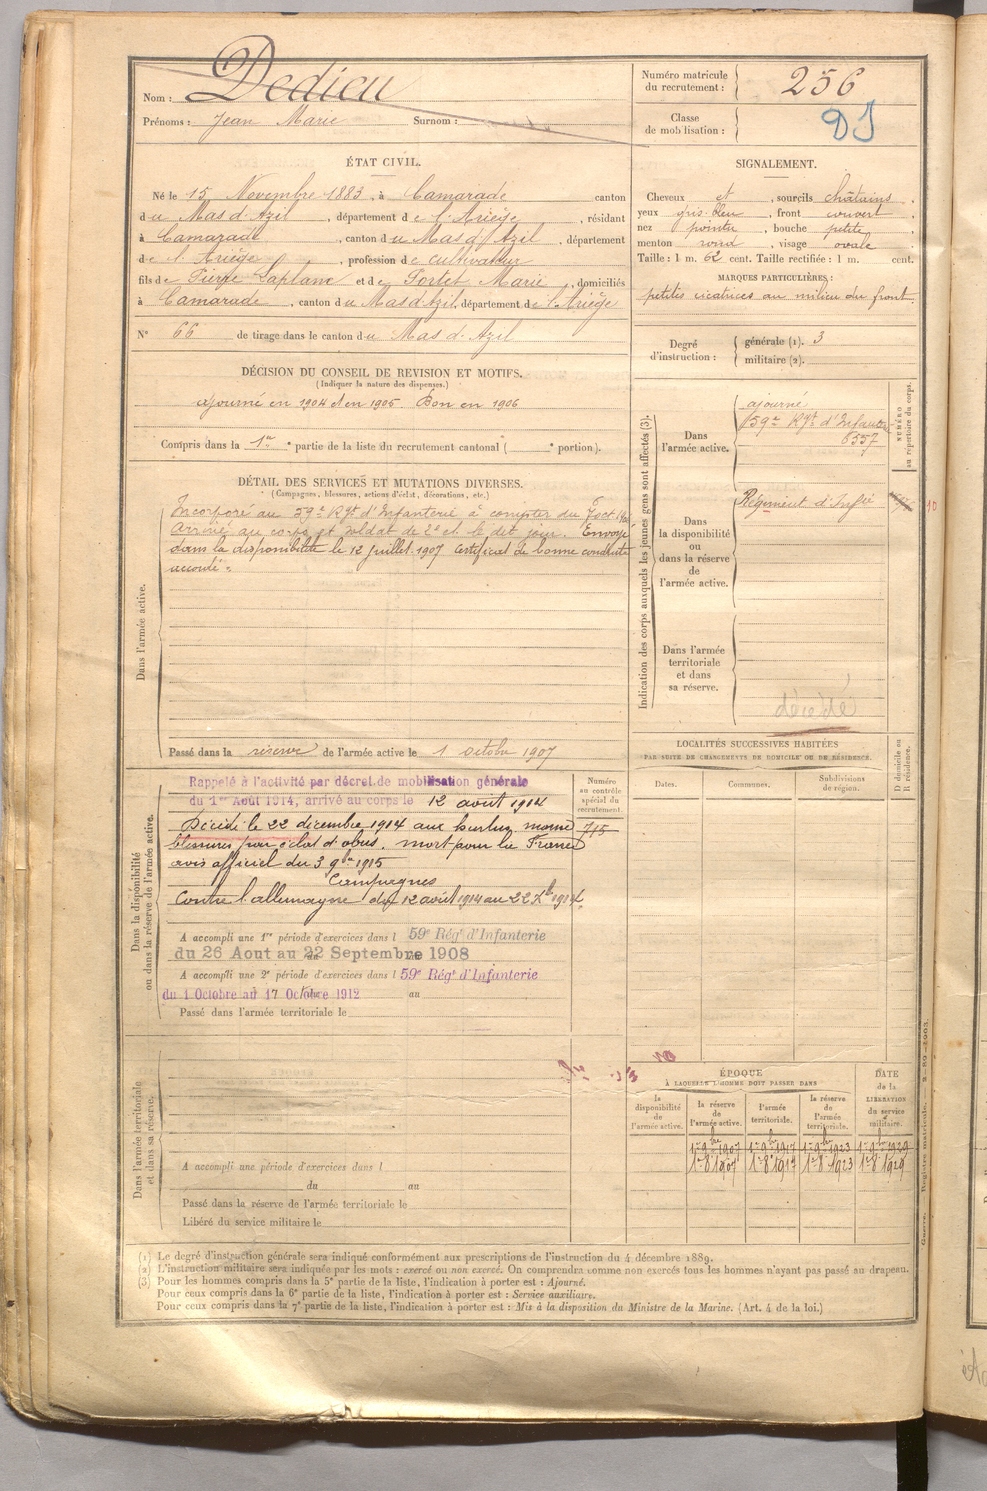 Nom : Dedieu
Prénoms : Jean Marie Surnom :
Numéro matricule du recrutement : 256
Classe de mobilisation :
ÉTAT CIVIL.
Né le 15 Novembre 1883, à Camarade canton
du Mas d'Azil, département de l'Ariège, résidant
à Camarade, canton du Mas d'Azil, département
de l'Ariège, profession de cultivateur
fils de Pierre Laplane et de Portet Marie, domiciliés
à Camarade, canton du Mas d'Azil, département de l'Ariège
N° 66 de tirage dans le canton du Mas d'Azil
SIGNALEMENT.
Cheveux et, sourcils châtains,
yeux gris-bleu, front couvert
nez pointu, bouche petite,
menton rond, visage ovale
Taille : 1 m. 62 cent. Taille rectifiée : 1 m. cent.
MARQUES PARTICULIÈRES :
petites cicatrices au milieu du front.
Degré d'instruction :
générale (1). 3
militaire (2).
DÉCISION DU CONSEIL DE REVISION ET MOTIFS.
(Indiquer la nature des dispenses.)
ajourné en 1904 et en 1905. Bon en 1906
Compris dans la 1re partie de la liste du recrutement cantonal ( portion).
DÉTAIL DES SERVICES ET MUTATIONS DIVERSES.
(Campagnes, blessures, actions d'éclat, décorations, etc.)
Dans l'armée active.
Incorporé au 59e Rgt d'Infanterie à compter du 7 oct
Arrivé au corps et soldat de 2e cl. le dit jour. Envoyé
dans la disponibilité le 12 juillet 1907 Certificat de bonne conduite
accordé.
Passé dans la réserve de l'armée active le 1 octobre 1907
Indication des corps auxquels les jeunes gens sont affectés (3).
NUMÉRO au répertoire du corps.
Dans l'armée active.
ajourné
59e Rgt d'Infanterie
6557
Dans la disponibilité ou dans la réserve de l'armée active.
Régiment d'Infie
10
Dans l'armée territoriale et dans sa réserve.
décédé
LOCALITÉS SUCCESSIVES HABITÉES
PAR SUITE DE CHANGEMENTS DE DOMICILE OU DE RÉSIDENCE.
Dates. Communes. Subdivisions de région. D domicile ou R résidence.
Dans la disponibilité ou dans la réserve de l'armée active.
Numéro au contrôle spécial du recrutement.
715
Rappelé à l'activité par décret de mobilisation générale
du 1er Août 1914, arrivé au corps le 12 août 1914
Décédé le 22 décembre 1914 aux hurlus marne
blessures par éclat d'obus. mort pour la France
avis officiel du 3 9bre 1915
Campagnes
Contre l'allemagne du 12 août 1914 au 22 Xbre 1914.
A accompli une 1re période d'exercices dans l 59e Régt d'Infanterie
du 26 Aout au 22 Septembre 1908
A accompli une 2e période d'exercices dans l 59e Régt d'Infanterie
du 1 Octobre au 17 Octobre 1912 au
Passé dans l'armée territoriale le
Dans l'armée territoriale et dans sa réserve.
A accompli une période d'exercices dans l
du au
Passé dans la réserve de l'armée territoriale le
Libéré du service militaire le
ÉPOQUE
À LAQUELLE L'HOMME DOIT PASSER DANS
DATE de la LIBÉRATION du service militaire.
la disponibilité de l'armée active. la réserve de l'armée active. l'armée territoriale. la réserve de l'armée territoriale.
1er 9bre 1907 1er 9bre 1917 1er 9bre 1923 1er 9bre 1929
1er 8 1907 1er 8 1917 1er 8 1923 1er 8 1929
(1) Le degré d'instruction générale sera indiqué conformément aux prescriptions de l'instruction du 4 décembre 1889.
(2) L'instruction militaire sera indiquée par les mots : exercé ou non exercé. On comprendra comme non exercés tous les hommes n'ayant pas passé au drapeau.
(3) Pour les hommes compris dans la 5e partie de la liste, l'indication à porter est : Ajourné.
Pour ceux compris dans la 6e partie de la liste, l'indication à porter est : Service auxiliaire.
Pour ceux compris dans la 7e partie de la liste, l'indication à porter est : Mis à la disposition du Ministre de la Marine. (Art. 4 de la loi.)